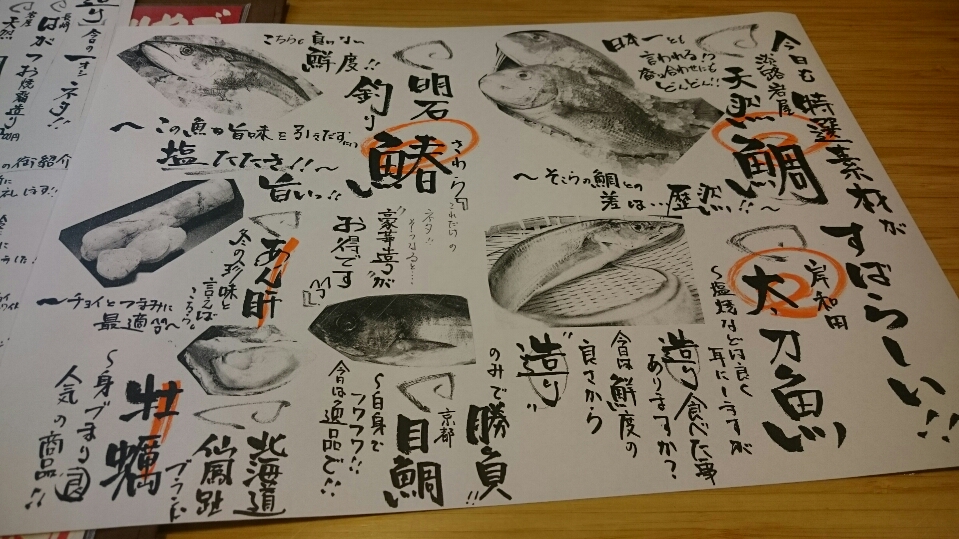 今日も特選素材が
すばらしい!!
淡路岩屋
天然鯛
日本一とも
言われる!?
食い合わせにも
どんどん!!
〜そこらの鯛との
差は…歴然!!〜
岸和田
大太刀魚
〜塩焼などは良く
耳にしますが
造り食べた事
ありますか?
今日は鮮度の
良さから
"造り"
のみで勝負!!
明石
釣り鰆
さわら
こちらも良い
鮮度!!
〜この魚の旨味を引きだす
塩たたき!!〜
旨いっ!!
これだけの
ネタ!!
そろうと…
"豪華盛り"が
お得です
京都
目鯛
〜白身で
フワフワ!!
今日は逸品で!!
あん肝
冬の珍味と
言えば
こちら。
〜チョイとつまみに
最適品〜。
北海道
仙鳳趾
ブランド
牡蠣
〜身ブまり◎
人気の商品!!
今日の
一オシネタ!!
長崎
はがつお焼霜造り
天然
の街紹介